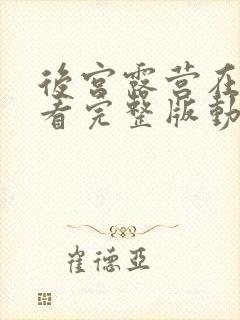 後宮露营在
看完整版動
崔德亞